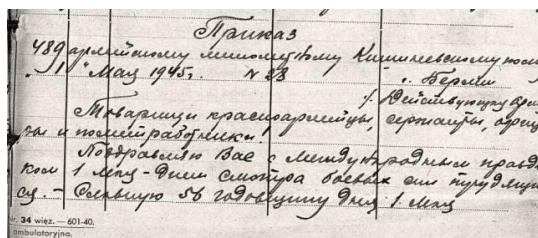 Приказ
489 армейскому минометному Кишиневскому полку
"1" Мая 1945г. N 28 г. Берлин
Действующая
Товарищи красноармейцы, сержанты, офице
ры и политработники!
Поздравляю Вас с международным праздни
ком 1 Мая - Днем смотра боевых сил трудящих
ся. - 56 годовщину дня 1 Мая
Nr. 34 więz. — 601-40.
ambulatoryjna.